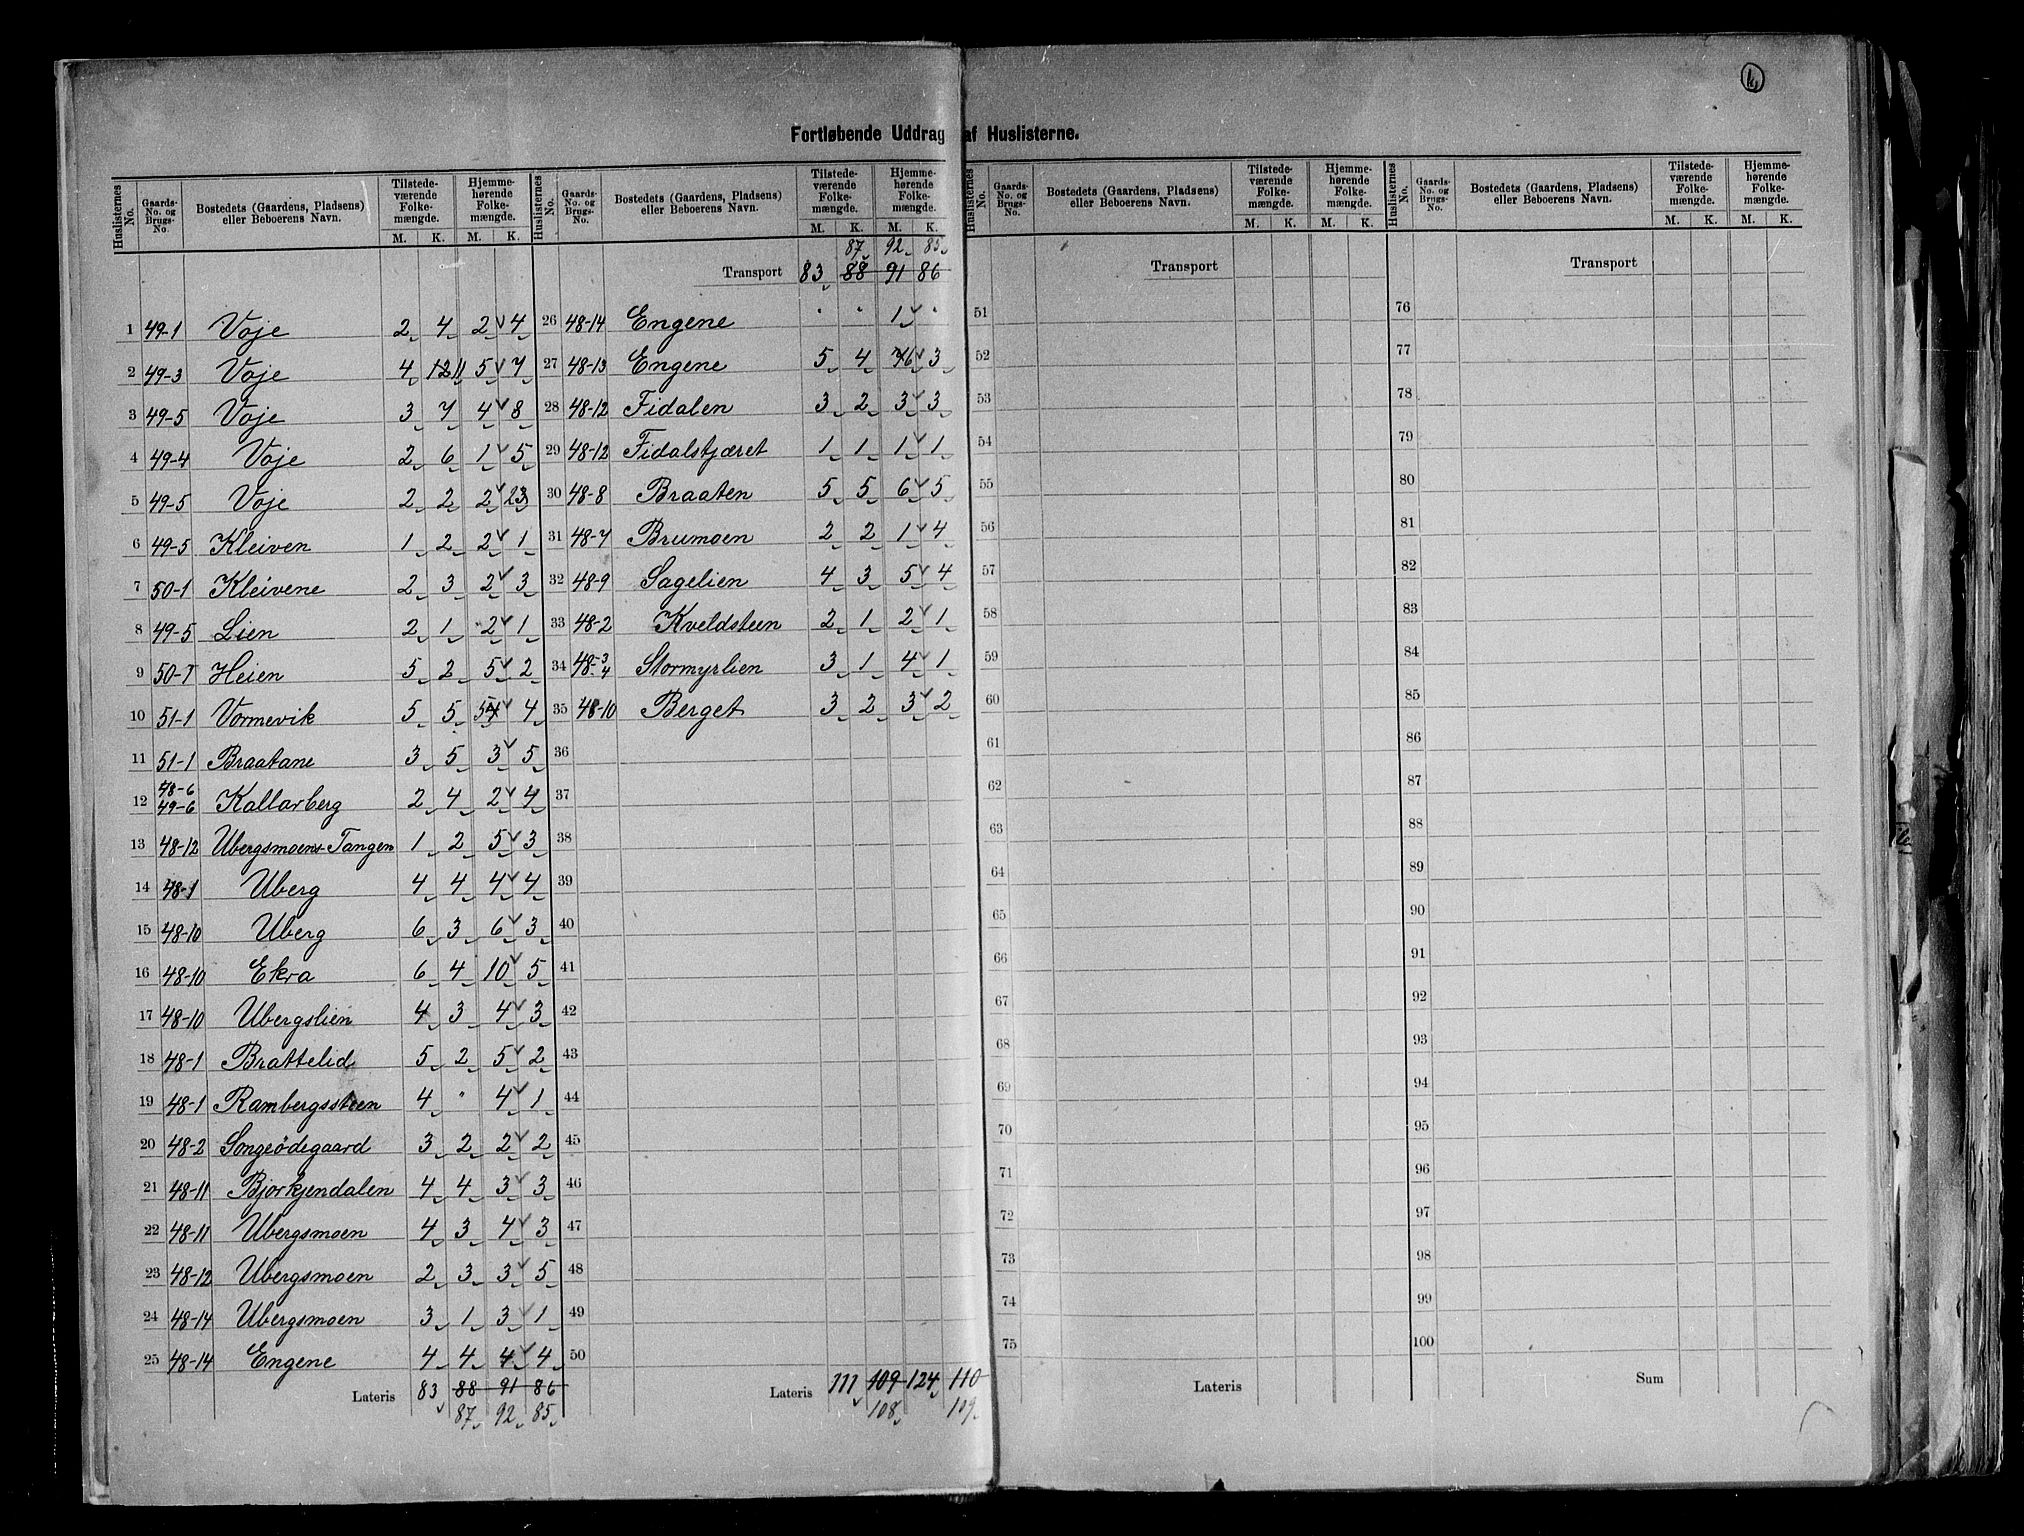 Fortløbende Uddrag af Huslisterne.
Huslisternes No. | Gaards-No. og Brugs-No. | Bostedets (Gaardens, Pladsens) eller Beboerens Navn. | Tilstedeværende Folkemængde. M. K. | Hjemmehørende Folkemængde. M. K.
1 49-1 Voje 2 4 2 4
2 49-3 Voje 4 12 11 5 7
3 49-5 Voje 3 7 4 8
4 49-4 Voje 2 6 1 5
5 49-5 Voje 2 2 2 23
6 49-5 Kleiven 1 2 2 1
7 50-1 Kleivene 2 3 2 3
8 49-5 Lien 2 1 2 1
9 50-1 Heien 5 2 5 2
10 51-1 Vormevik 5 5 5 4 4
11 51-1 Braatane 3 5 3 5
12 48-6 49-6 Kallarberg 2 4 2 4
13 48-12 Ubergsmoens Tangen 1 2 5 3
14 48-1 Uberg 4 4 4 4
15 48-10 Uberg 6 3 6 3
16 48-10 Ekra 6 4 10 5
17 48-10 Ubergslien 4 3 4 3
18 48-1 Brattelid 5 2 5 2
19 48-1 Rambergssteen 4 " 4 1
20 48-2 Songeödegaard 3 2 2 2
21 48-11 Bjorkjendalen 4 4 3 3
22 48-11 Ubergsmoen 4 3 4 3
23 48-12 Ubergsmoen 2 3 3 5
24 48-14 Ubergsmoen 3 1 3 1
25 48-14 Engene 4 4 4 4
Lateris 83 88 91 86
87 92 85
Huslisternes No. | Gaards-No. og Brugs-No. | Bostedets (Gaardens, Pladsens) eller Beboerens Navn. | Tilstedeværende Folkemængde. M. K. | Hjemmehørende Folkemængde. M. K.
87 92 85
Transport 83 88 91 86
26 48-14 Engene " " 1 "
27 48-13 Engene 5 4 7 6 3
28 48-12 Fidalen 3 2 3 3
29 48-12 Fidalstjæret 1 1 1 1
30 48-8 Braaten 5 5 6 5
31 48-7 Brumoen 2 2 1 4
32 48-9 Sagelien 4 3 5 4
33 48-2 Kveldsteen 2 1 2 1
34 48-3 4 Stormyrlien 3 1 4 1
35 48-10 Berget 3 2 3 2
36
37
38
39
40
41
42
43
44
45
46
47
48
49
50
Lateris 111 109 124 110
108 109
Huslisternes No. | Gaards-No. og Brugs-No. | Bostedets (Gaardens, Pladsens) eller Beboerens Navn. | Tilstedeværende Folkemængde. M. K. | Hjemmehørende Folkemængde. M. K.
Transport
51
52
53
54
55
56
57
58
59
60
61
62
63
64
65
66
67
68
69
70
71
72
73
74
75
Lateris
Huslisternes No. | Gaards-No. og Brugs-No. | Bostedets (Gaardens, Pladsens) eller Beboerens Navn. | Tilstedeværende Folkemængde. M. K. | Hjemmehørende Folkemængde. M. K.
Transport
76
77
78
79
80
81
82
83
84
85
86
87
88
89
90
91
92
93
94
95
96
97
98
99
100
Sum